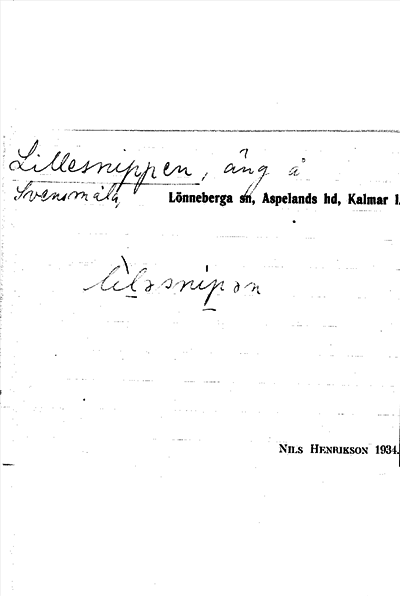 Lillesnippen, äng å
Svensmåla, Lönneberga sn, Aspelands hd, Kalmar l.
lìləsnipən
NILS HENRIKSON 1934.